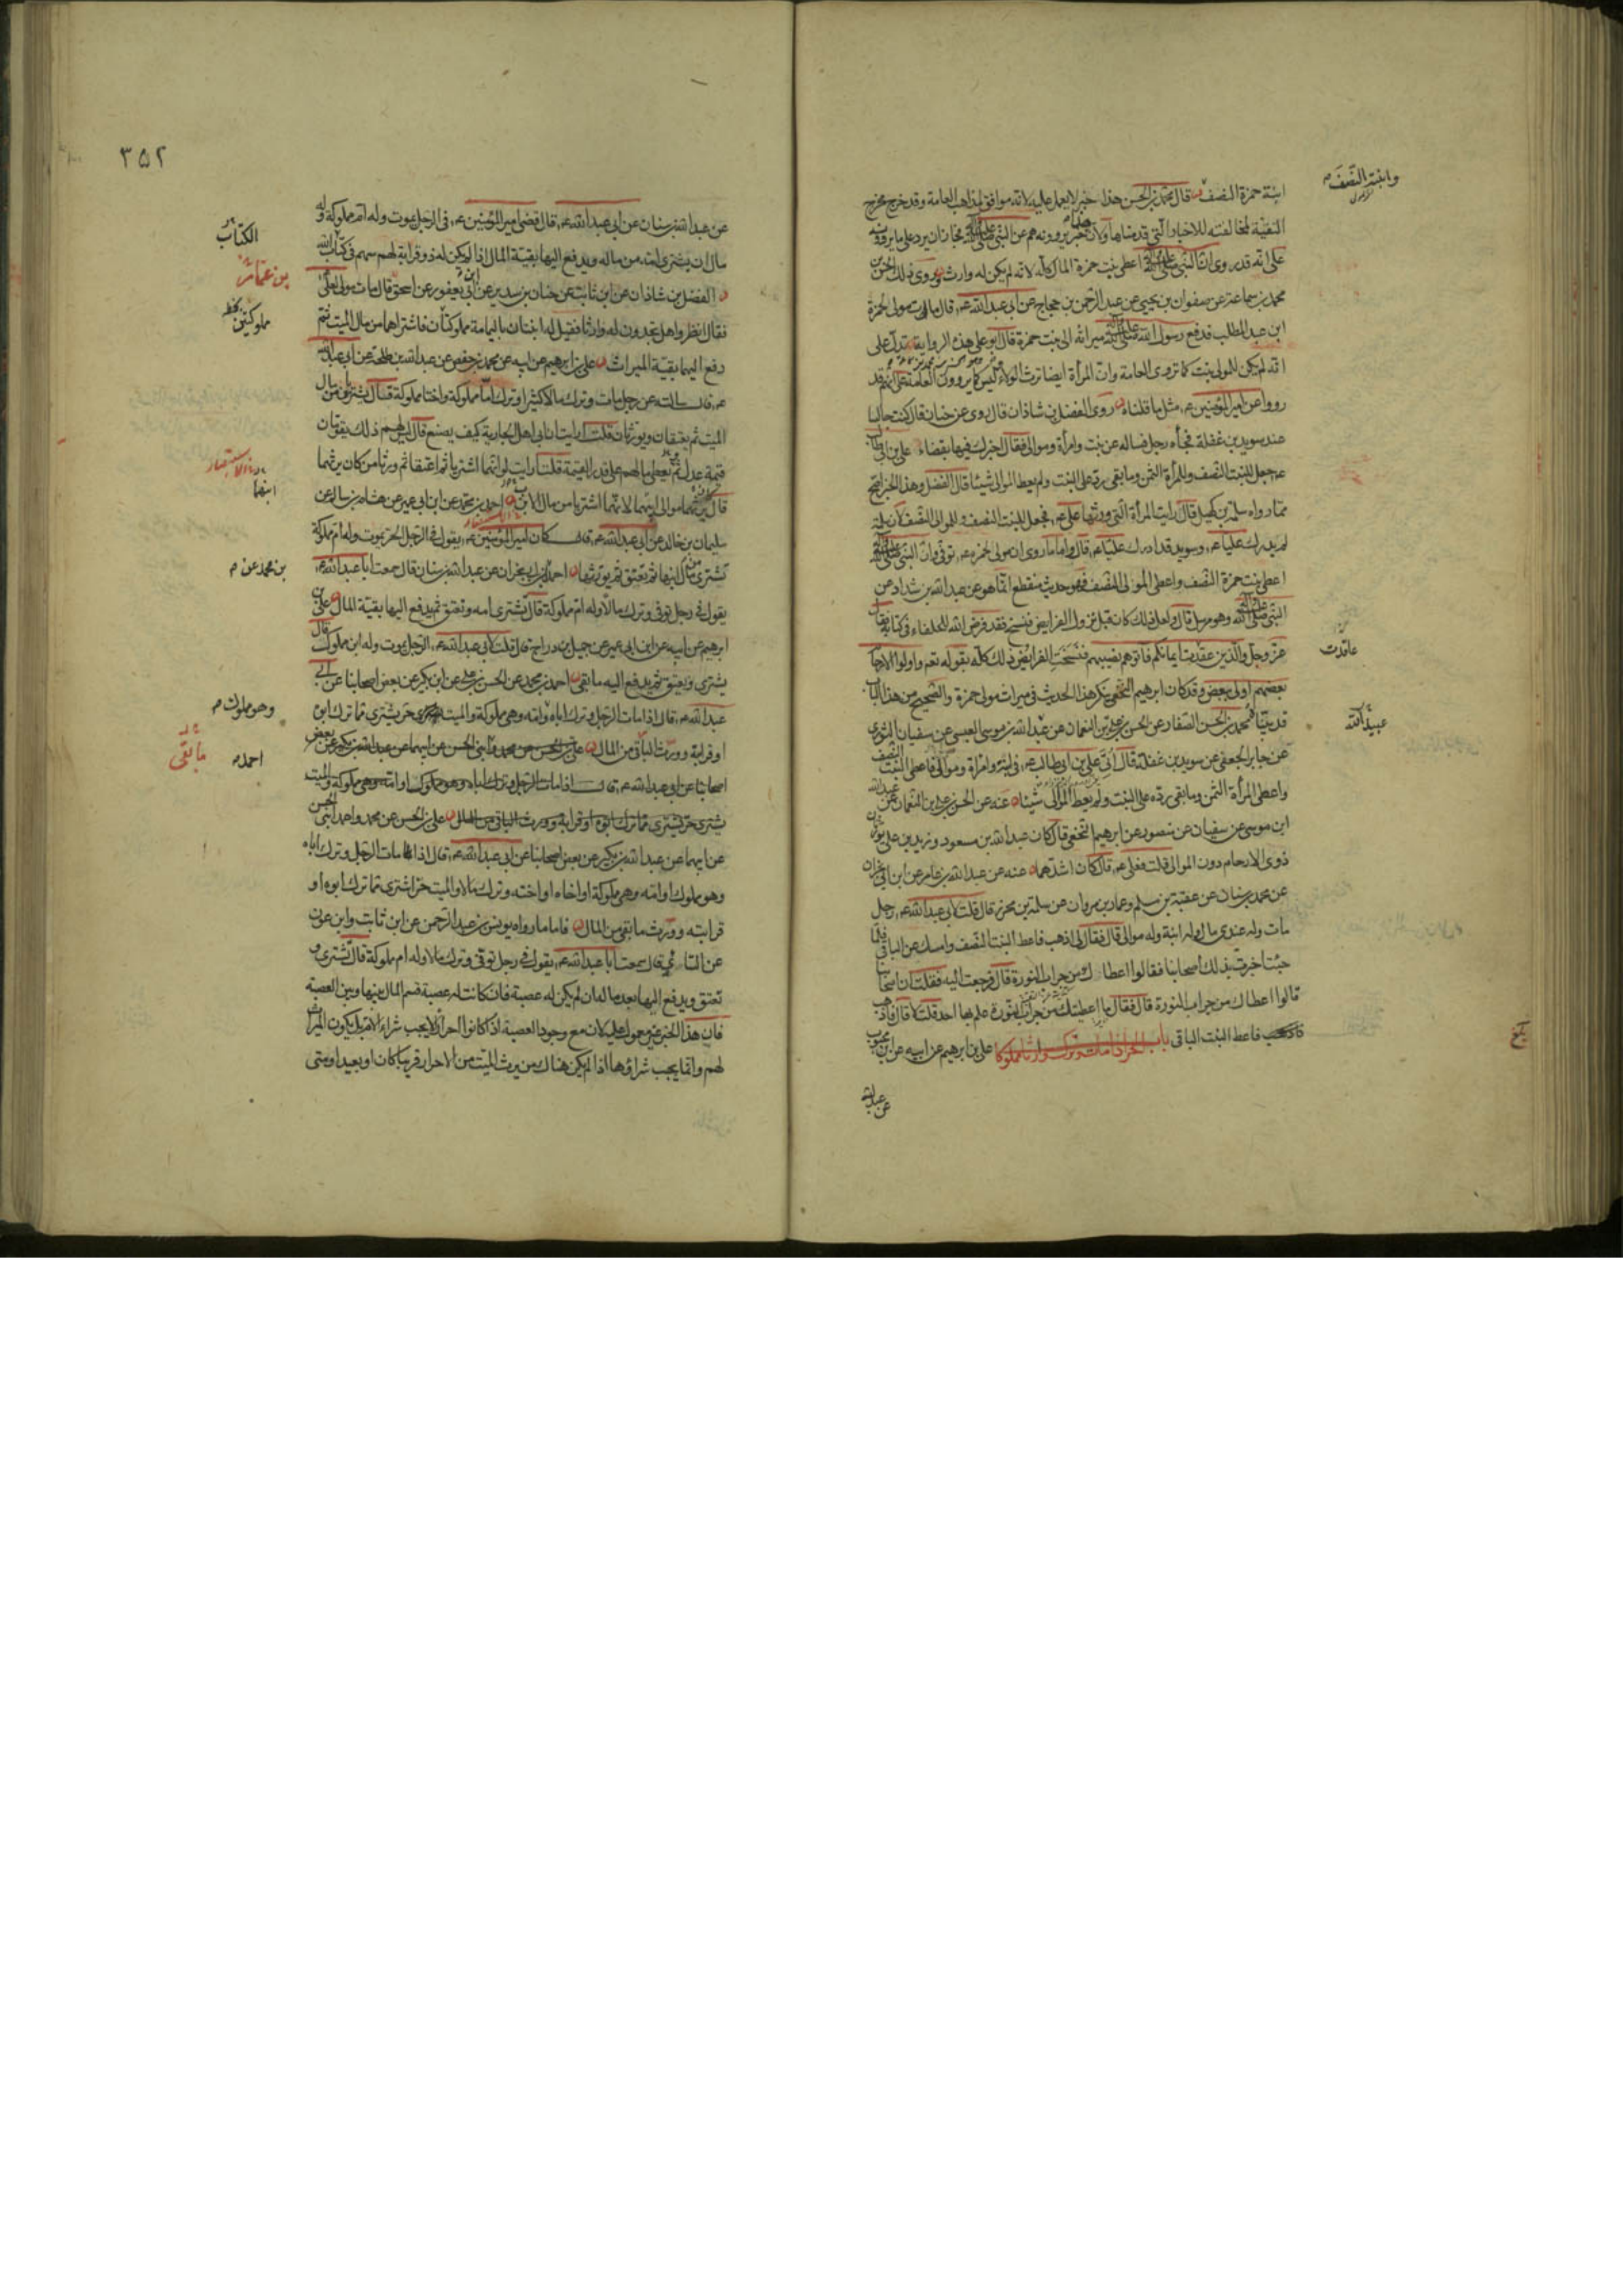 وابنته النصف
ابنة حمزة النصف قال محمد بن الحسن هذا خبر لا يعمل عليه لانه موافق لمذاهب العامة وقد خرج مخرج
التقية لمخالفته للاخبار التي قدمناها ولان هذا خبر يروونه هم عن النبي صلى الله عليه وآله
على انه قد روى ان النبي صلى الله عليه وآله اعطى بنت حمزة المال كله لانه لم يكن له وارث روى ذلك الحسن بن
محمد بن سماعة عن صفوان بن يحيى عن عبد الرحمن بن حجاج عن ابي عبد الله ع قال مات مولى لحمزة
ابن عبد المطلب فدفع رسول الله صلى الله عليه وآله ميراثه الى بنت حمزة قال ابو علي هذه الرواية تدل على
انه لم يكن للمولى بنت كما تروى العامة وان المرأة ايضا ترث الولاء ليس كما يروون العامة على انهم قد
رووا عن امير المؤمنين ع مثل ما قلناه روى الفضل بن شاذان قال روى عن حنان قال كنت جالسا
عند سويد بن غفلة فجاءه رجل فساله عن بنت وامرأة وموالى فقال اخبرك فيها بقضاء علي بن ابي طالب
ع جعل للبنت النصف وللمرأة الثمن وما بقى رد على البنت ولم يعط الموالى شيئا قال الفضل وهذا الخبر اصح
مما رواه سلمة بن كهيل قال رايت المرأة التي ورثها علي ع فجعل للبنت النصف وللموالى النصف لان سلمة
لم يدرك عليا ع وسويد قد ادرك عليا ع قال واما ما روى ان مولى حمزة توفى وان النبي صلى الله عليه وآله
اعطى بنت حمزة النصف واعطى المولى النصف فهو حديث منقطع انما هو عن عبد الله بن شداد عن
النبي صلى الله عليه وآله وهو مرسل قال ولعل ذلك كان قبل نزول الفرايض فنسخ فقد فرض الله للحلفاء في كتابه فقال
عاقدت
عز وجل والذين عقدت ايمانكم فاتوهم نصيبهم فنسخت الفرائض ذلك كله بقوله تعالى واولوا الارحام
بعضهم اولى ببعض وقد كان ابرهيم النخعي ينكر هذا الحديث في ميراث مولى حمزة والصحيح من هذا الباب
عبيد الله
قد بينا محمد بن الحسن الصفار عن الحسن بن علي بن النعمان عن عبد الله بن موسى العبسي عن سفيان الثوري
عن جابر الجعفي عن سويد بن غفلة قال ان علي بن ابي طالب ع في ابنة وامرأة وموالى فاعطى البنت النصف
واعطى المرأة الثمن وما بقى رده على البنت ولم يعط الموالى شيئا عنه عن الحسن بن علي بن النعمان عن عبد الله
ابن موسى عن سفيان عن منصور عن ابرهيم النخعي قال كان عبد الله بن مسعود وزيد بن علي يورثان
ذوى الارحام دون الموالى قلت فعلي ع قال كان اشدهما عنه عن عبد الله بن عامر عن ابن ابي نجران
عن محمد بن سنان عن عقبة بن مسلم وعمار بن مروان عن سلمة بن محرز قال قلت لابي عبد الله ع رجل
مات وله عندى مال وله ابنة وله موالى قال فقال لى اذهب فاعط البنت النصف وامسك عن الباقي فلما
جئت اخبرت بذلك اصحابنا فقالوا اعطاك من جراب النورة قال فرجعت اليه فقلت ان اصحابنا
قالوا اعطاك من جراب النورة قال فقال ما اعطيتك من جراب النورة علم بها احد قلت لا قال فاذهب
فاعط البنت الباقي باب الحر اذا مات وترك وارثا مملوكا علي بن ابرهيم عن ابيه عن ابن محبوب
بلغ
عن عبد الله
٣٥٢
عن عبد الله بن سنان عن ابي عبد الله ع قال قضى امير المؤمنين ع في الرجل يموت وله ام مملوكة وله
مال ان يشترى امه من ماله ويدفع اليها بقية المال اذا لم يكن له ذو قرابة لهم سهم في كتاب الله
الكتاب
بن عمار
الفضل بن شاذان عن ابن ثابت عن حنان بن سدير عن ابن ابي يعفور عن اسحق قال مات مولى لعلي
فقال انظروا هل تجدون له وارثا فقيل له ابنتان باليمامة مملوكتان فاشتراهما من مال الميت ثم
مملوكتين
دفع اليهما بقية الميراث علي بن ابرهيم عن ابيه عن محمد بن حفص عن عبد الله بن طلحة عن ابي عبد الله
ع قال سالته عن رجل مات وترك مالا كثيرا وترك اما مملوكة واختا مملوكة قال يشتريان من مال
الميت ثم يعتقان ويورثان قلت ارايت ان ابى اهل الجارية كيف يصنع قال ليس لهم ذلك يقومان
قيمة عدل ثم يعطى مالهم على قدر القيمة قلت ارايت لو انهما اشتريا ثم اعتقا ثم ورثا من كان يرثهما
قال يرثهما موالى ابنهما لانهما اشتريا من مال الابن احمد بن محمد عن ابن ابي عمير عن هشام بن سالم عن
ابنهما
سليمان بن خالد عن ابي عبد الله ع قال كان امير المؤمنين ع يقول في الرجل الحر يموت وله ام مملوكة
تشترى من مال ابنها ثم تعتق ثم يورثها احمد بن ابي نجران عن عبد الله بن سنان قال سمعت ابا عبد الله ع
بن محمد عن
يقول في رجل توفى وترك مالا وله ام مملوكة قال تشترى امه وتعتق ثم يدفع اليها بقية المال علي بن
ابرهيم عن ابيه عن ابن ابي عمير عن جميل بن دراج قال قلت لابي عبد الله ع الرجل يموت وله ابن مملوك قال
يشترى ويعتق ثم يدفع اليه ما بقى احمد بن محمد عن الحسن بن علي عن ابن بكير عن بعض اصحابنا عن ابي
عبد الله ع قال اذا مات الرجل وترك اباه وامه وهى مملوكة والميت حر يشترى مما ترك ابوه
وهو مملوك
او قرابة وورث الباقي من المال علي بن الحسن عن محمد بنى الحسن عن ابيهما عن عبد الله بن بكير عن بعض
احمد
ما بقى
اصحابنا عن ابي عبد الله ع قال اذا مات الرجل وترك اباه وهو مملوك او امه وهى مملوكة والميت
يشترى حر يشترى مما ترك ابوه او قرابة وورث الباقي من المال علي بن الحسن عن محمد واحمد ابنى الحسن
عن ابيهما عن عبد الله بن بكير عن بعض اصحابنا عن ابي عبد الله ع قال اذا مات الرجل وترك اباه
وهو مملوك او امه وهى مملوكة او اخاه او اخته وترك مالا والميت حر اشترى مما ترك ابوه او
قرابته وورث ما بقى من المال فاما ما رواه يونس بن عبد الرحمن عن ابن ثابت وابن عون
عن السائي قال سمعت ابا عبد الله ع يقول في رجل توفى وترك مالا وله ام مملوكة قال تشترى و
تعتق ويدفع اليها بعد ماله ان لم يكن له عصبة فان كانت له عصبة قسم المال بينها وبين العصبة
فان هذا الخبر غير معمول عليه لان مع وجود العصبة اذا كانوا احرارا لا يجب شراء الام بل يكون الميراث
لهم وانما يجب شراؤها اذا لم يكن هناك من يرث الميت من الاحرار قريبا كان او بعيدا ومتى